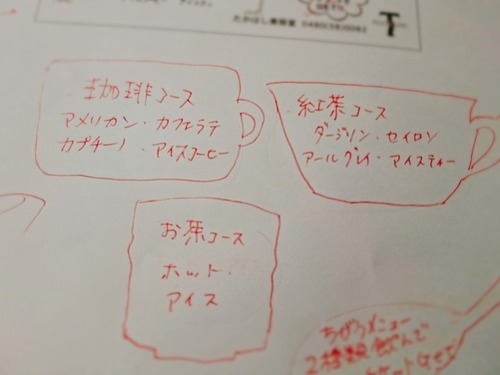 たかはし美容室 0480(58)0062
珈琲コース
アメリカン・カフェラテ
カプチーノ・アイスコーヒー
紅茶コース
ダージリン・セイロン
アールグレイ・アイスティー
お茶コース
ホット
アイス
ちがうメニュー
2種類飲んで